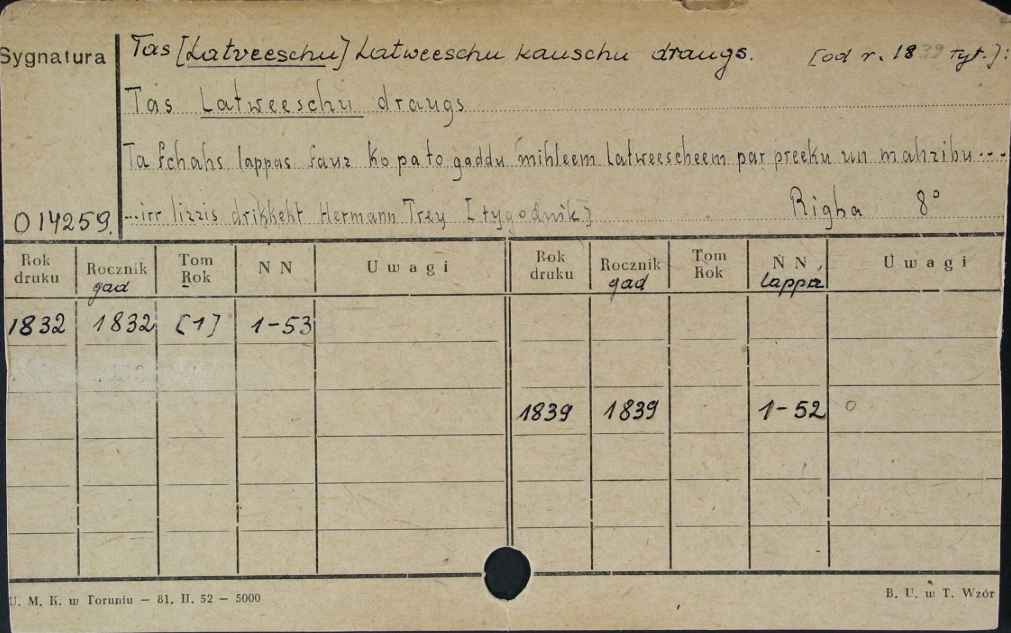 Sygnatura
Tas [Latveeschu] Latweeschu kauschu draugs. [od r. 1839 Tyt.]:
Tas Latweeschu draugs
Ta schahs lappas sauz ko pa to gaddu mihleem latweescheem par preeku un mahzibu ...
O 14259. ...irr lizzis drikkeht Hermann Trey [tygodnik] Righa 8°
Rok druku Rocznik gad Tom Rok N N Uwagi Rok druku Rocznik gad Tom Rok N N, lappa Uwagi
1832 1832 [1] 1-53
1839 1839 1-52
U. M. K. w Toruniu — 81. II. 52 — 5000 B. U. w T. Wzór